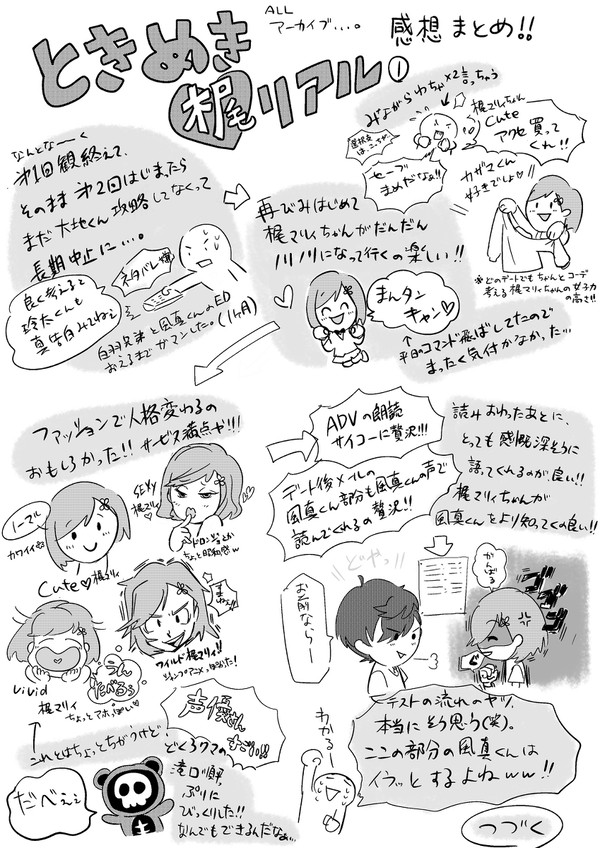 ALL
アーカイブ...。
感想まとめ!!
ときめき
梶リアル①
みながらわちゃ×2言っちゃう
梶マリィちゃん
Cute
アクセ買って
くれ!!
セーブ
まめだなぁ!!
カザマくん
好きでしょ♡!!
※どのデートでもちゃんとコーデ
考える梶マリィちゃんの女子力
の高さ!!
なんとな〜く
第1回観終えて、
そのまま第2回はじまったら
まだ大地くん攻略してなくって
長期中止に...。
ネタバレ嫌
良く考えると
玲太くんも
真告白みてねぇ
白羽兄弟と風真くんのED
おえるまでガマンした。(1ヶ月)
再びみはじめて
梶マリィちゃんがだんだん
ノリノリになって行くの楽しい!!
まんタン
キャン♡
↑
平日のコマンド飛ばしてたので
まったく気付かなかった...
ファッションで人格変わるの
おもしろかった!! サービス満点や!!!
ノーマル
カワイイね
Cute♡梶マリィ
SEXY
梶マリィ♡
ちょっと昭和感w
ワイルド梶マリィ!!
ジャンプアニメっぽかった!
ViVid
梶マリィ
ちょっとアホっぽい♡
うん
たべるぅ
これとはちょっとちがうけど
声優さん
すごい!!!
どくろクマの
滝口順平
ぷりに
びっくりした!!
なんでもできるんだなぁ...
だべぇぇ
ADVの朗読
サイコーに贅沢!!!
デート後メイルの
風真くん部分も風真くんの声で
読んでくれるの贅沢!!
読みおわったあとに、
とっても感慨深そうに
語ってくれるのが良い!!
梶マリィちゃんが
風真くんをより知ってくの良い!!
どやっ!!
お前なら〜
かんばる
ゴゴゴ
わかる〜
テストの流れのヤツ、
本当にそう思う(笑)。
ここの部分の風真くんは
イラッとするよねww!!
つづく